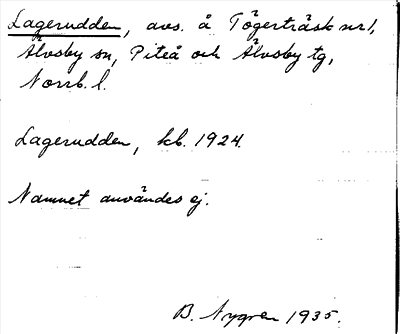 Lagerudden, avs. å Tögerträsk nr 1,
Älvsby sn, Piteå och Älvsby tg,
Norrb. l.
Lagerudden, kb. 1924.
Namnet användes ej.
B. Nygren 1935.